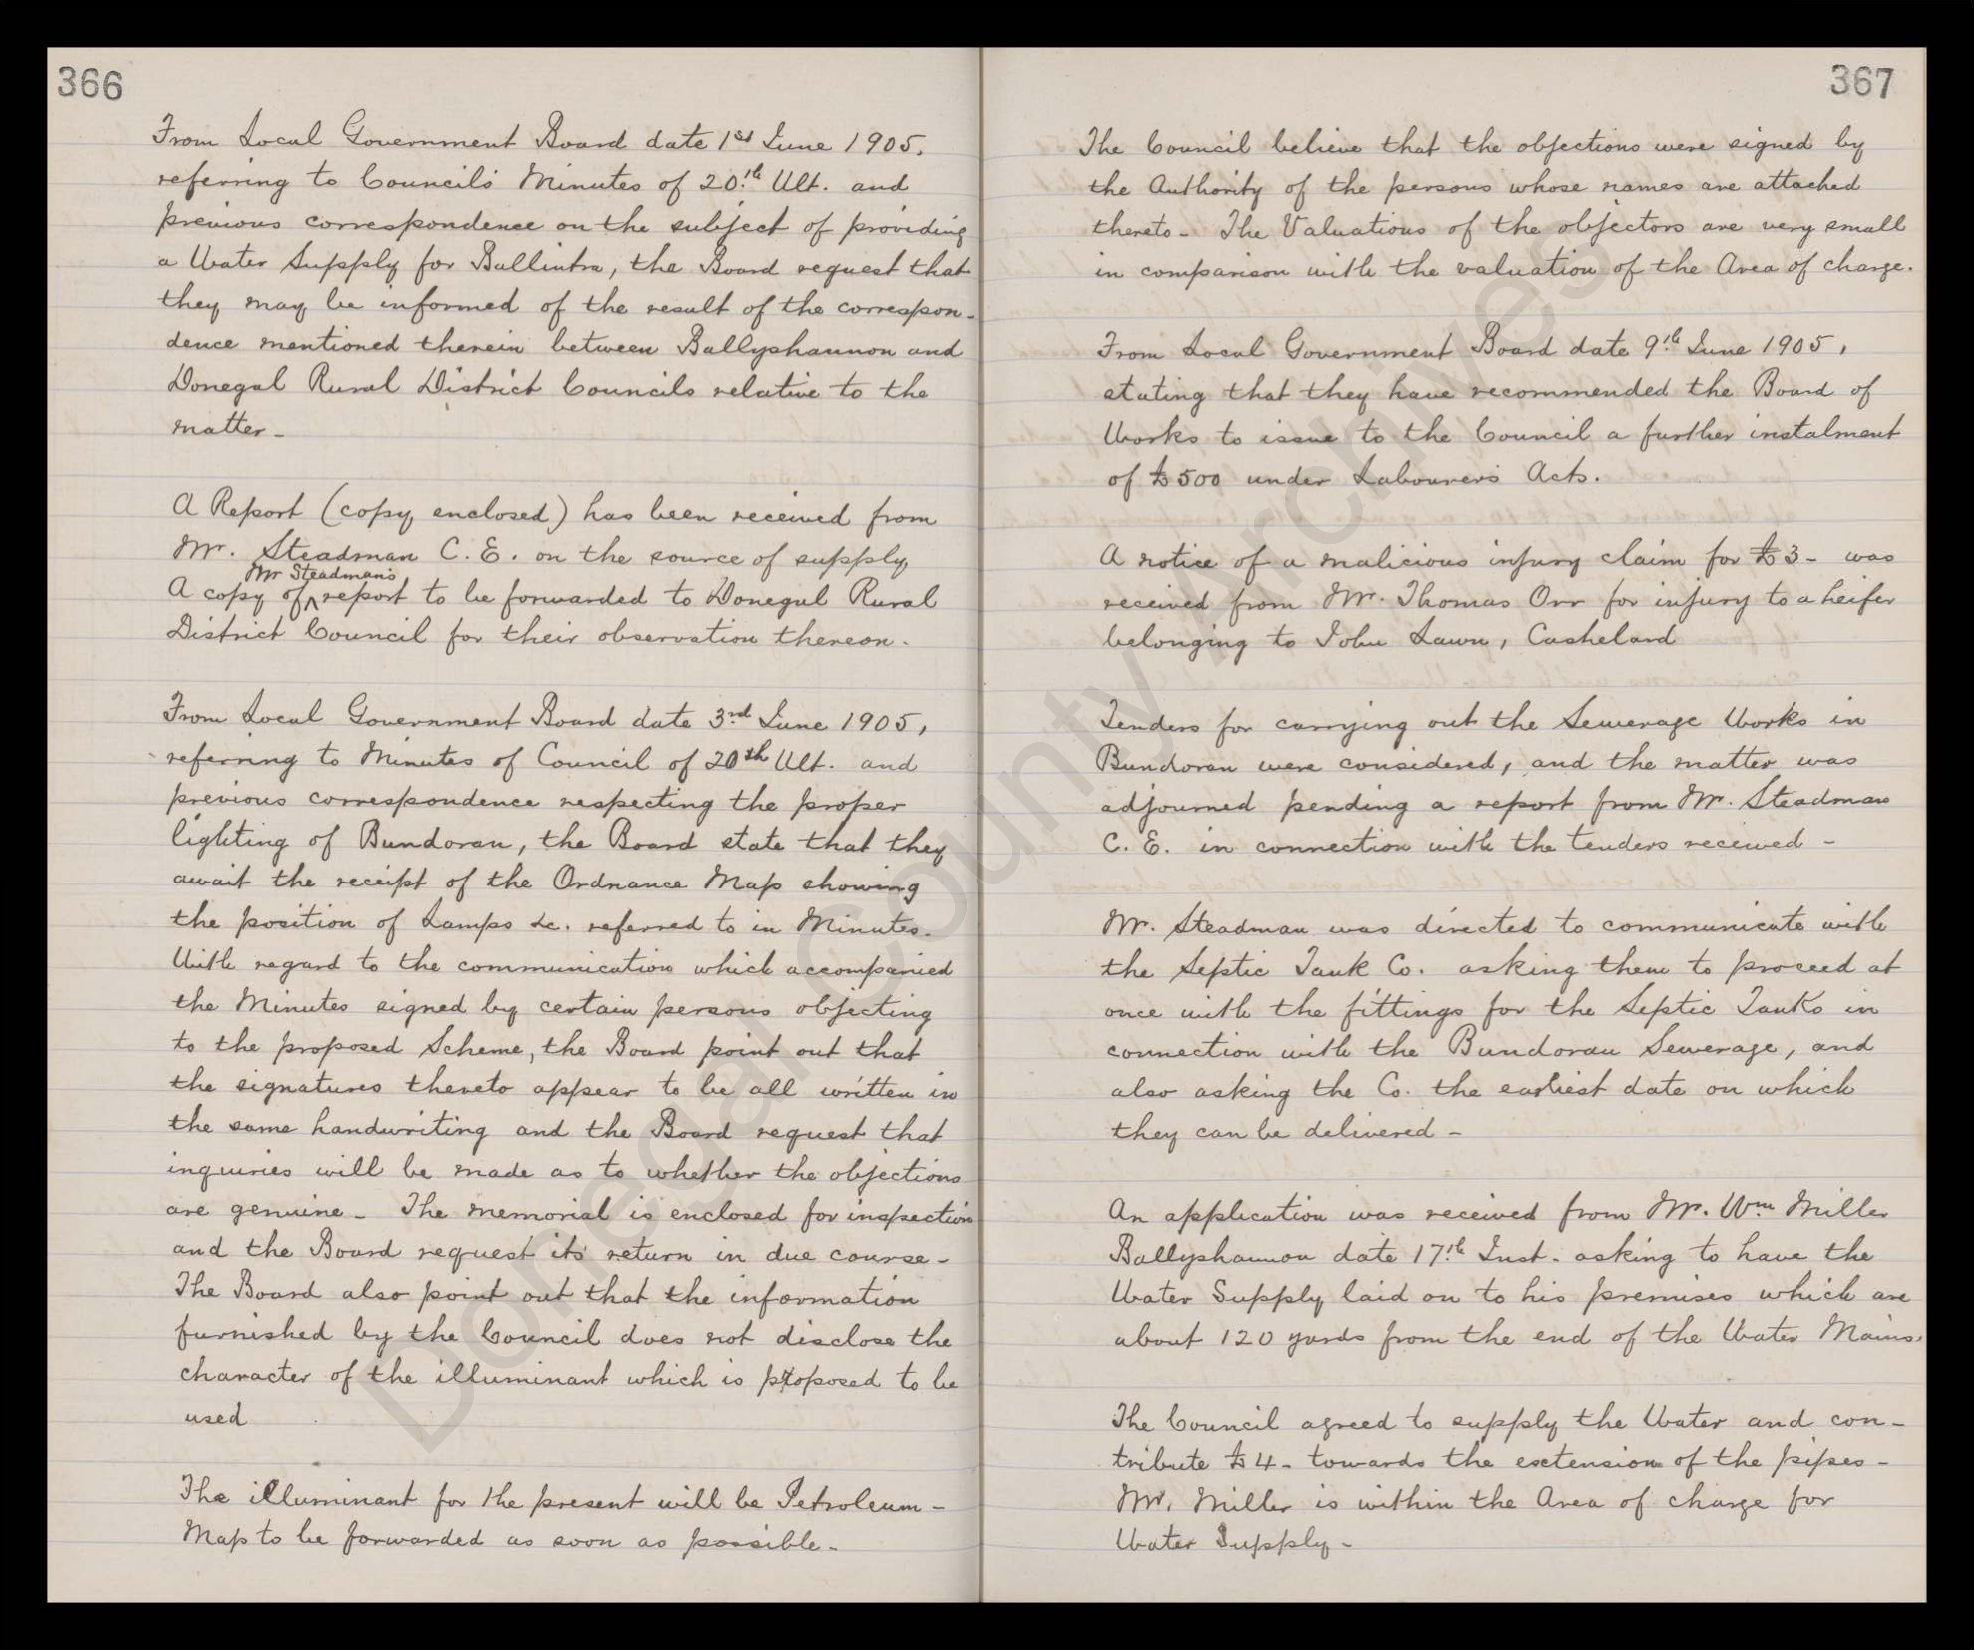 366
From Local Government Board date 1st June 1905,
referring to Council's Minutes of 20th Ult. and
previous correspondence on the subject of providing
a Water Supply for Ballintra, the Board request that
they may be informed of the result of the correspon-
dence mentioned therein between Ballyshannon and
Donegal Rural District Councils relative to the
matter -
A Report (copy enclosed) has been received from
Mr. Steadman C. E. on the source of supply
Mr Steadman's
A copy of ^ report to be forwarded to Donegal Rural
District Council for their observation thereon.
From Local Government Board date 3rd June 1905,
referring to Minutes of Council of 20th Ult. and
previous correspondence respecting the proper
lighting of Bundoran, the Board state that they
await the receipt of the Ordnance Map showing
the position of Lamps &c. referred to in Minutes.
With regard to the communication which accompanied
the Minutes signed by certain persons objecting
to the proposed Scheme, the Board point out that
the signatures thereto appear to be all written in
the same handwriting and the Board request that
inquiries will be made as to whether the objections
are genuine - The memorial is enclosed for inspection
and the Board request its return in due course -
The Board also point out that the information
furnished by the Council does not disclose the
character of the illuminant which is proposed to be
used
The illuminant for the present will be Petroleum -
Map to be forwarded as soon as possible -
367
The Council believe that the objections were signed by
the Authority of the persons whose names are attached
thereto - The Valuations of the objectors are very small
in comparison with the valuation of the Area of charge.
From Local Government Board date 9th June 1905,
stating that they have recommended the Board of
Works to issue to the Council a further instalment
of £500 under Labourers Acts.
A notice of a malicious injury claim for £3 - was
received from Mr. Thomas Orr for injury to a heifer
belonging to John Lawn, Cashelard
Tenders for carrying out the Sewerage Works in
Bundoran were considered, and the matter was
adjourned pending a report from Mr. Steadman
C. E. in connection with the tenders received -
Mr. Steadman was directed to communicate with
the Septic Tank Co. asking them to proceed at
once with the fittings for the Septic Tanks in
connection with the Bundoran Sewerage, and
also asking the Co. the earliest date on which
they can be delivered -
An application was received from Mr. Wm Miller
Ballyshannon date 17th Inst. asking to have the
Water Supply laid on to his premises which are
about 120 yards from the end of the Water Mains.
The Council agreed to supply the Water and con-
tribute £4 - towards the extension of the pipes -
Mr. Miller is within the Area of charge for
Water Supply -
Donegal County Archives